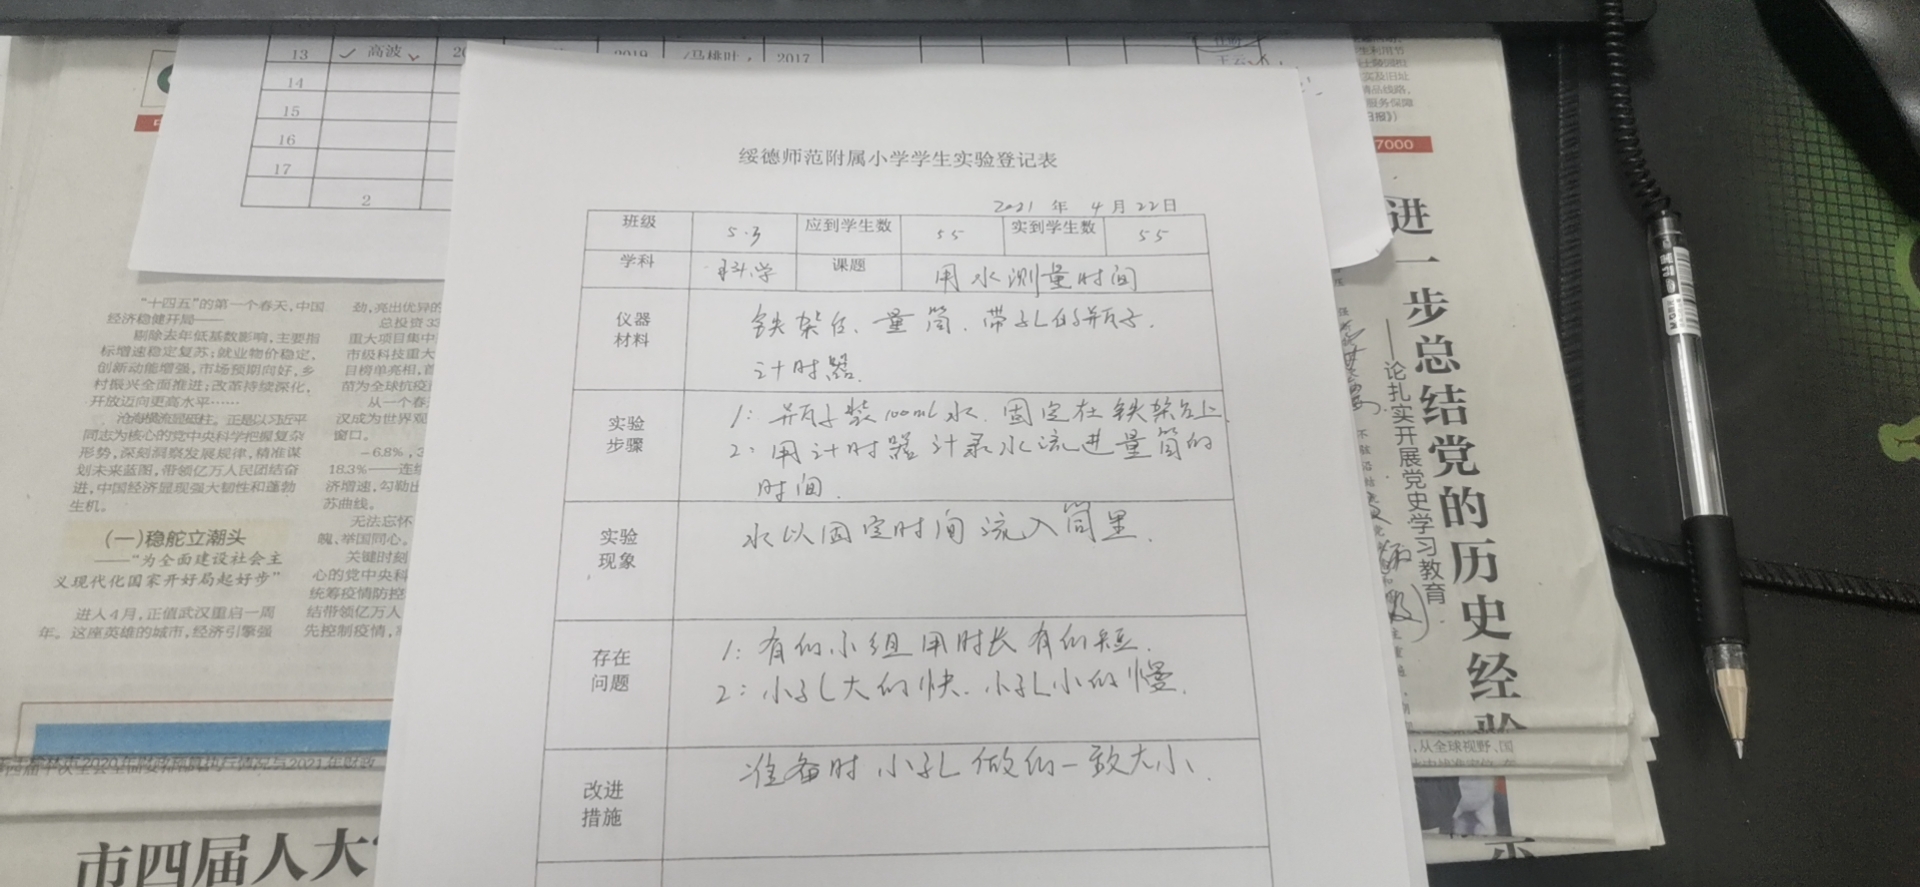 绥德师范附属小学学生实验登记表
2021 年 4 月 22 日
班级 5.3 应到学生数 55 实到学生数 55
学科 科学 课题 用水测量时间
仪器材料
铁架台、量筒、带孔的瓶子、
计时器.
实验步骤
1: 瓶子装100ml水.固定在铁架台上
2: 用计时器计录水流进量筒的
时间.
实验现象
水以固定时间流入筒里.
存在问题
1: 有的小组用时长有的短.
2: 小孔大的快.小孔小的慢.
改进措施
准备时小孔做的一致大小.
13 高波 2019 马桃叶 2017
14
15
16
17
2
“十四五”的第一个春天,中国
经济稳健开局——
剔除去年低基数影响,主要指
标增速稳定复苏;就业物价稳定,
创新动能增强,市场预期向好,乡
村振兴全面推进;改革持续深化,
开放迈向更高水平……
沧海横流显砥柱。正是以习近平
同志为核心的党中央科学把握复杂
形势,深刻洞察发展规律,精准谋
划未来蓝图,带领亿万人民团结奋
进,中国经济显现强大韧性和蓬勃
生机。
(一)稳舵立潮头
——“为全面建设社会主
义现代化国家开好局起好步”
进入4月,正值武汉重启一周
年。这座英雄的城市,经济引擎强
劲,亮出优异的
总投资33
重大项目集中
市级科技重大
目榜单亮相,首
苗为全球抗疫
从一个春
汉成为世界观
窗口。
－6.8%,3
18.3%——连续
济增速,勾勒出
苏曲线。
无法忘怀
魄、举国同心。
关键时刻
心的党中央科
统筹疫情防控
结带领亿万人
先控制疫情,
市四届人大
7000
进一步总结党的历史经验
——论扎实开展党史学习教育
,从全球视野、国